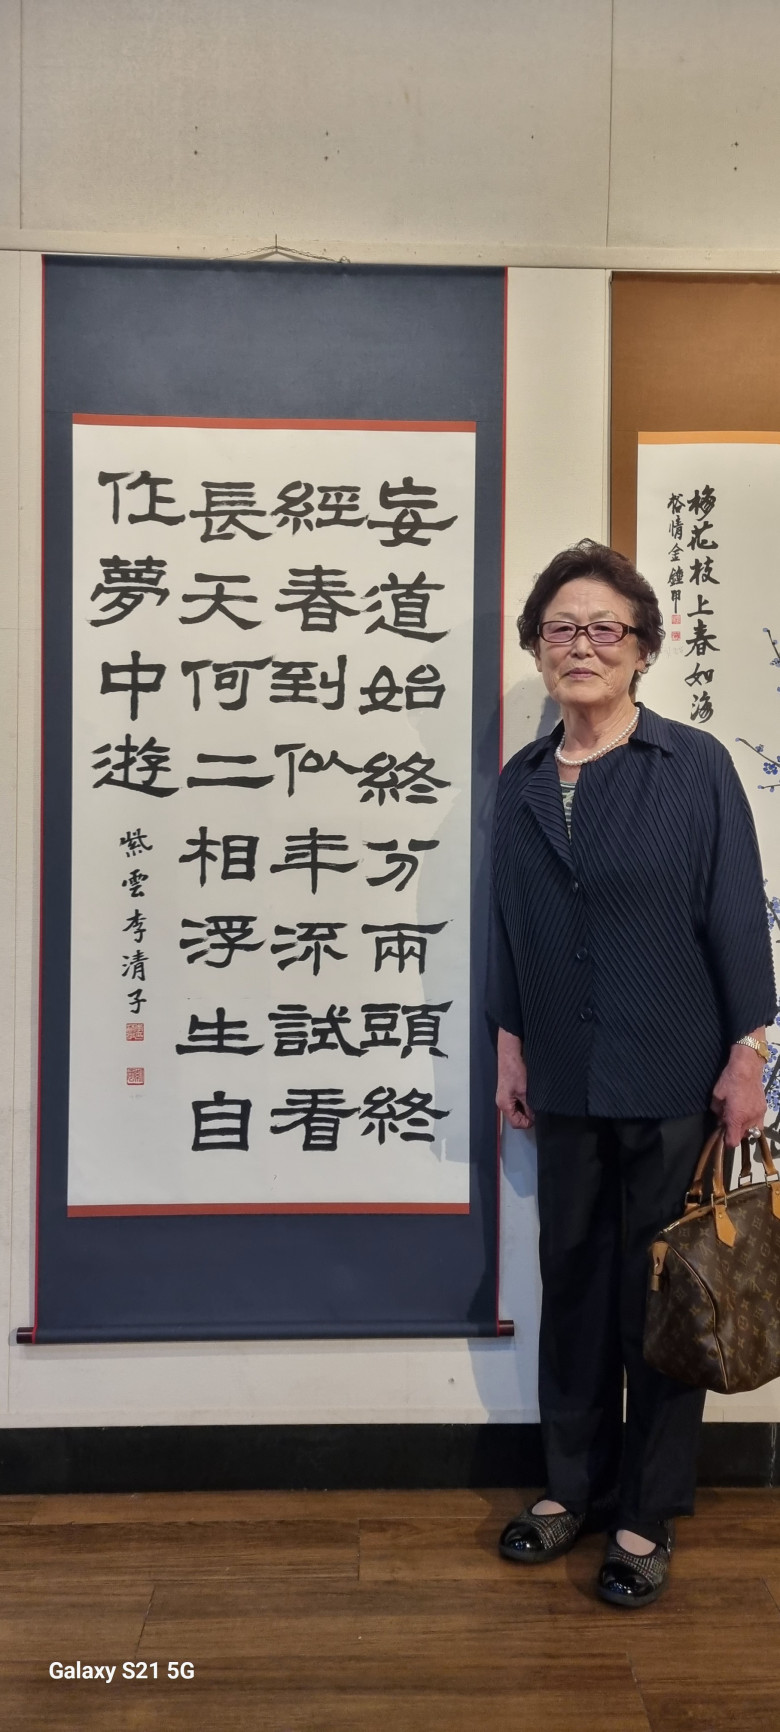 妄道始終分兩頭終
經春到似年流試看
長天何二相浮生自
作夢中遊
紫雲李清子
梅花枝上春如海
情金
Galaxy S21 5G